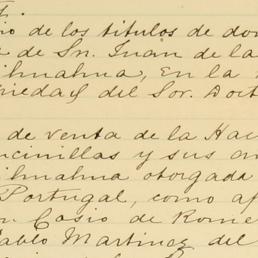 io de los titulos de do
de Sn. Juan de la
ihuahua, en la
riedad del Sor. Doct
de venta de la Hac
ncinillas y sus an
ihuahua otorgada
Portugal, como ap
on Casio de Rome
Pablo Martinez del